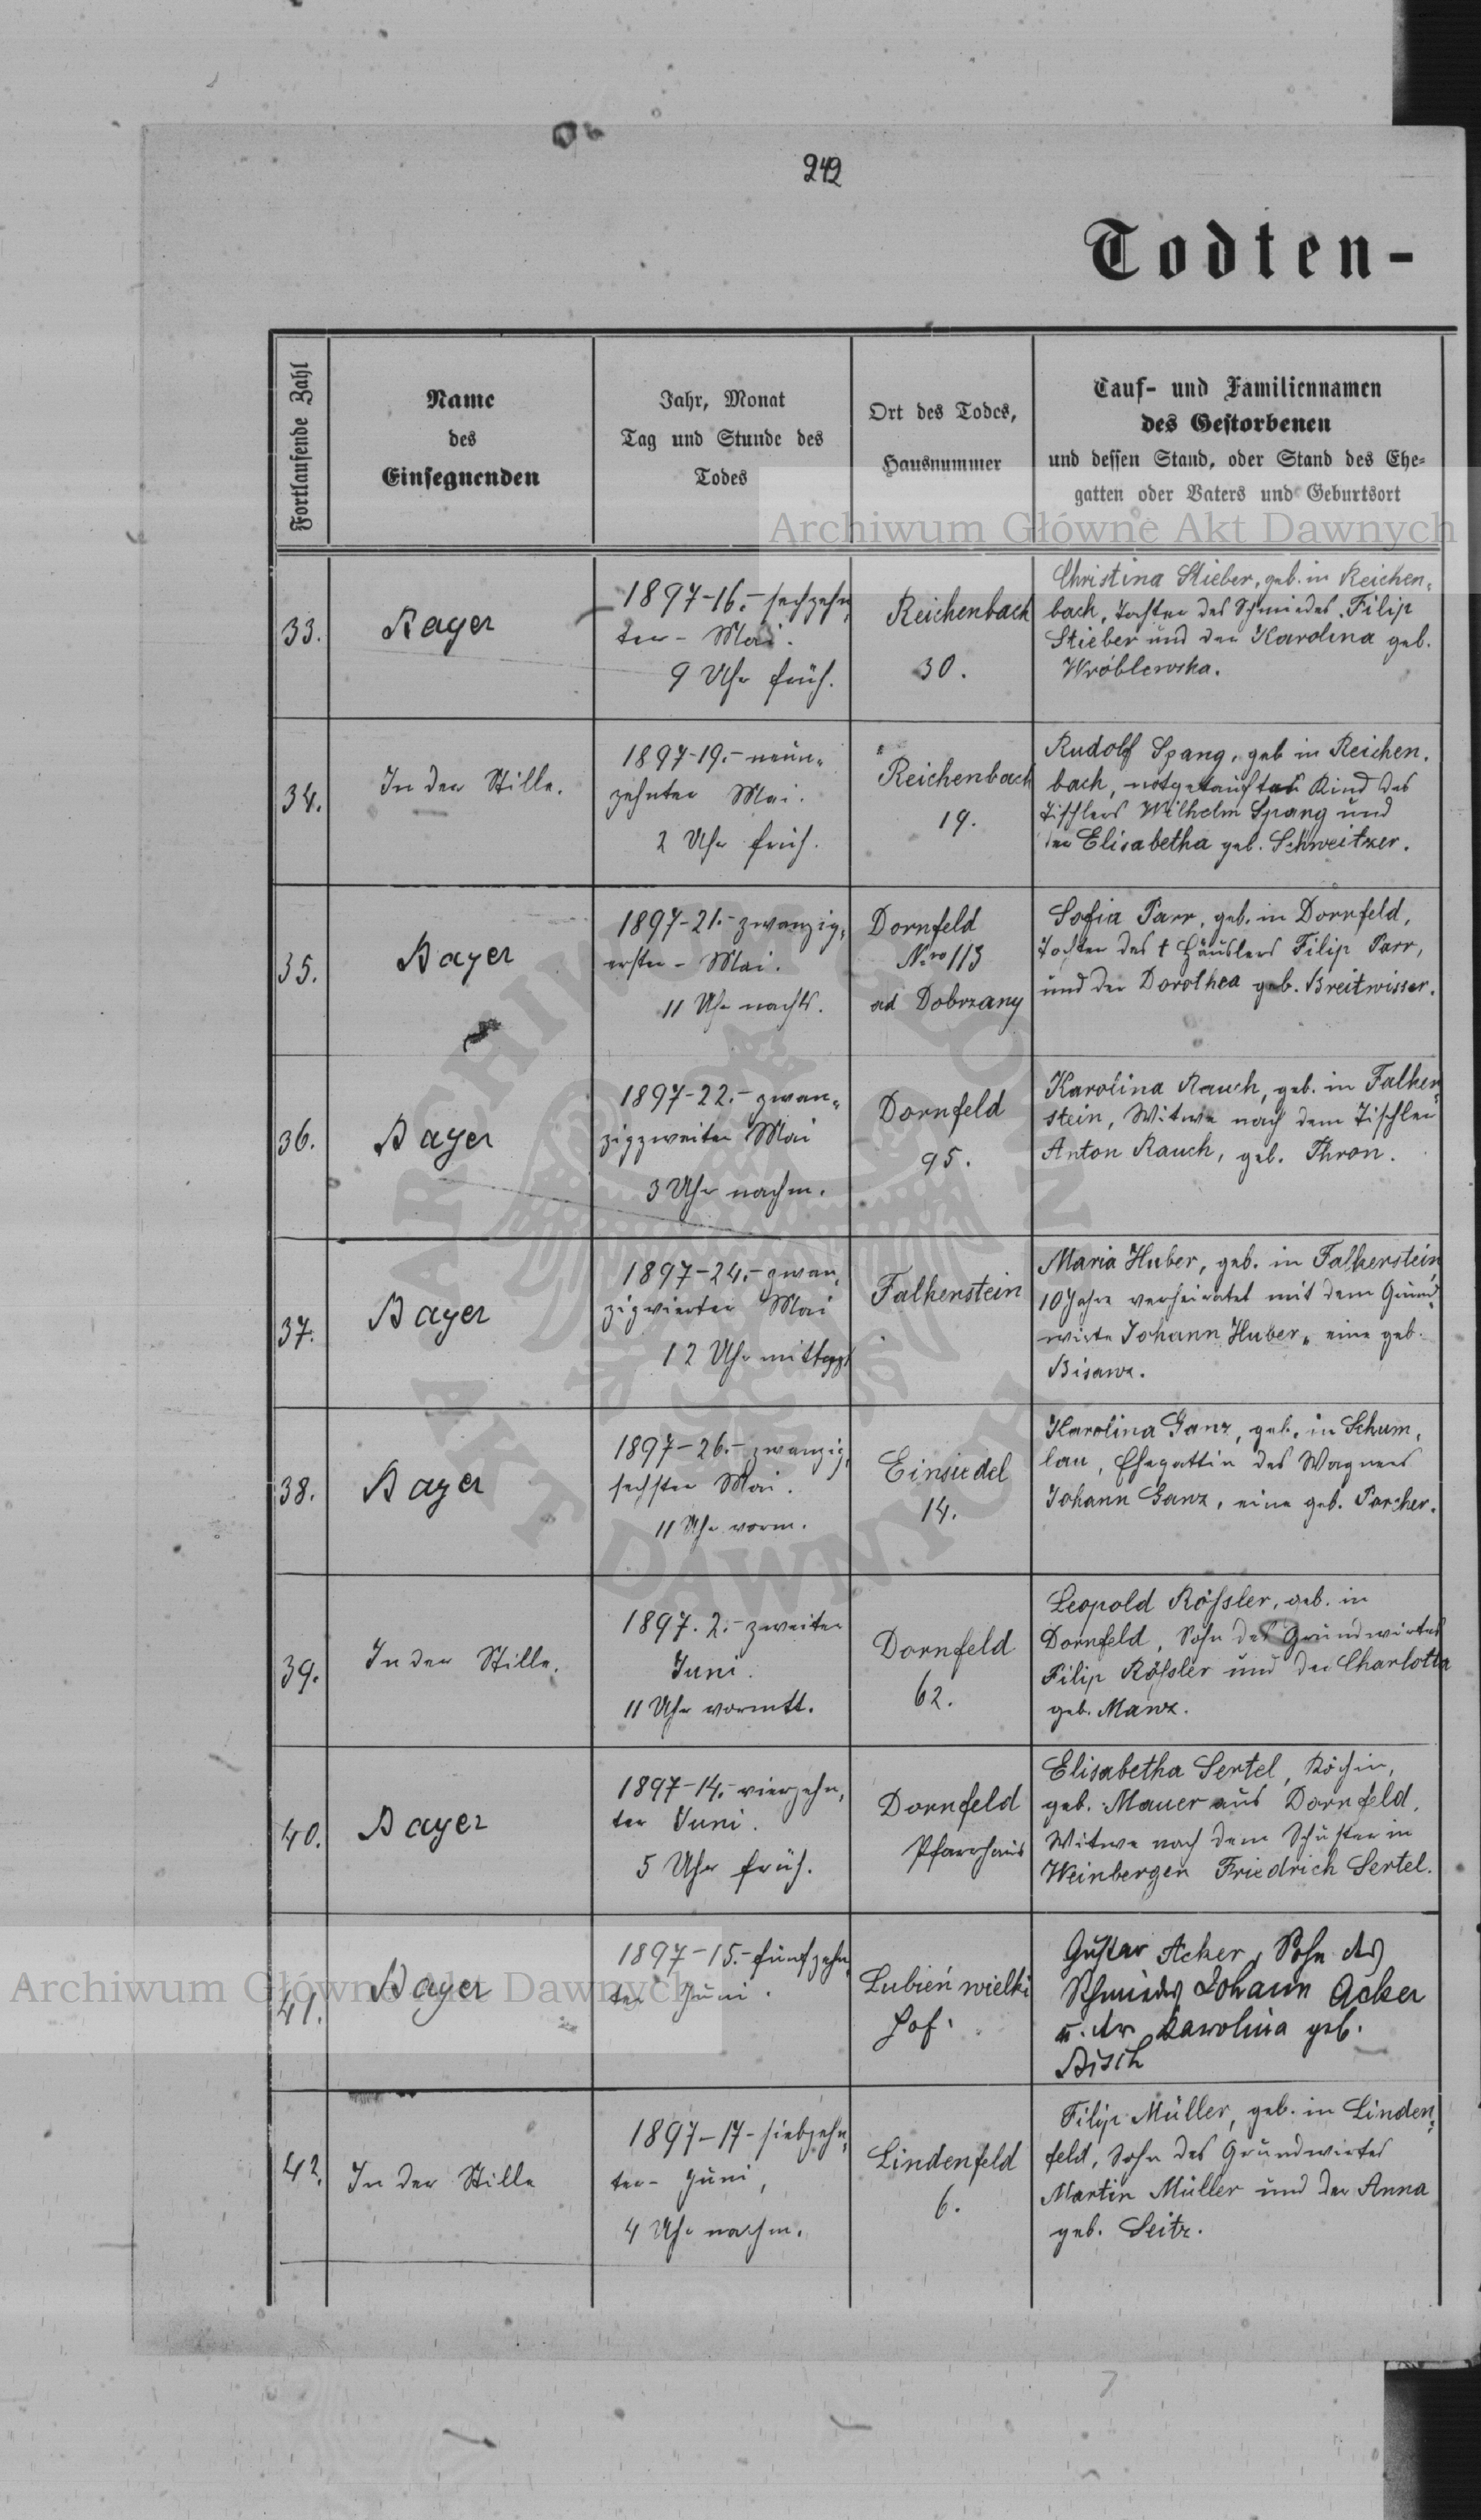 242
Todten-
Fortlaufende Zahl
Name
des
Einsegnenden
Jahr, Monat
Tag und Stunde des
Todes
Ort des Todes,
Hausnummer
Tauf- und Familiennamen
des Gestorbenen
und dessen Stand, oder Stand des Ehe-
gatten oder Vaters und Geburtsort
Archiwum Główne Akt Dawnych
33.
Bayer
1897-16.- sechzehn-
ter - Mai.
9 Uhr früh.
Reichenbach
30.
Christina Stieber, geb. in Reichen-
bach, Tochter des Schmiedes Filip
Stieber und der Karolina geb.
Wróblewska.
34.
In der Stille.
1897-19.- neun-
zehnter Mai.
2 Uhr früh.
Reichenbach
19.
Rudolf Spang, geb in Reichen-
bach, notgetauftes Kind des
Tischlers Wilhelm Spang und
der Elisabetha geb. Schweitzer.
35.
Bayer
1897-21.- zwanzig-
erster - Mai.
11 Uhr nachts.
Dornfeld
Nro 113
ad Dobrzany
Sofia Parr, geb. in Dornfeld,
Tochter des † Häuslers Filip Parr,
und der Dorothea geb. Breitwisser.
36.
Bayer
1897-22.- zwan-
zigzweiter Mai
3 Uhr nachm.
Dornfeld
95.
Karolina Rauch, geb. in Falken-
stein, Witwe nach dem Tischler
Anton Rauch, geb. Thron.
37.
Bayer
1897-24.- zwan-
zigvierter Mai
12 Uhr mittags
Falkenstein
Maria Huber, geb. in Falkenstein
10 Jahre verheiratet mit dem Grund-
wirte Johann Huber, eine geb.
Bisanz.
38.
Bayer
1897-26.- zwanzig-
sechster Mai.
11 Uhr vorm.
Einsiedel
14.
Karolina Ganz, geb. in Schum-
lau, Ehegattin des Wagners
Johann Ganz, eine geb. Porcher.
39.
In der Stille.
1897. 2.- zweiter
Juni.
11 Uhr vormtt.
Dornfeld
62.
Leopold Rößler, geb. in
Dornfeld, Sohn des Grundwirtes
Filip Rößler und der Charlotta
geb. Manz.
40.
Bayer
1897-14.- vierzehn-
ter Juni.
5 Uhr früh.
Dornfeld
Pfarrhaus
Elisabetha Sertel, Köchin,
geb. Mauer aus Dornfeld,
Witwe nach dem Schuster in
Weinbergen Friedrich Sertel.
41.
Bayer
1897-15.- fünfzehn-
ter Juni.
Lubień wielki
Hof.
Gustav Acker, Sohn des
Schmiedes Johann Acker
u. der Karolina geb.
Bisch
Archiwum Główne Akt Dawnych
42.
In der Stille
1897-17- siebzehn-
ter - Juni,
4 Uhr nachm.
Lindenfeld
6.
Filip Müller, geb. in Linden-
feld, Sohn des Grundwirtes
Martin Müller und der Anna
geb. Seitz.
ARCHIWUM GŁÓWNE AKT DAWNYCH